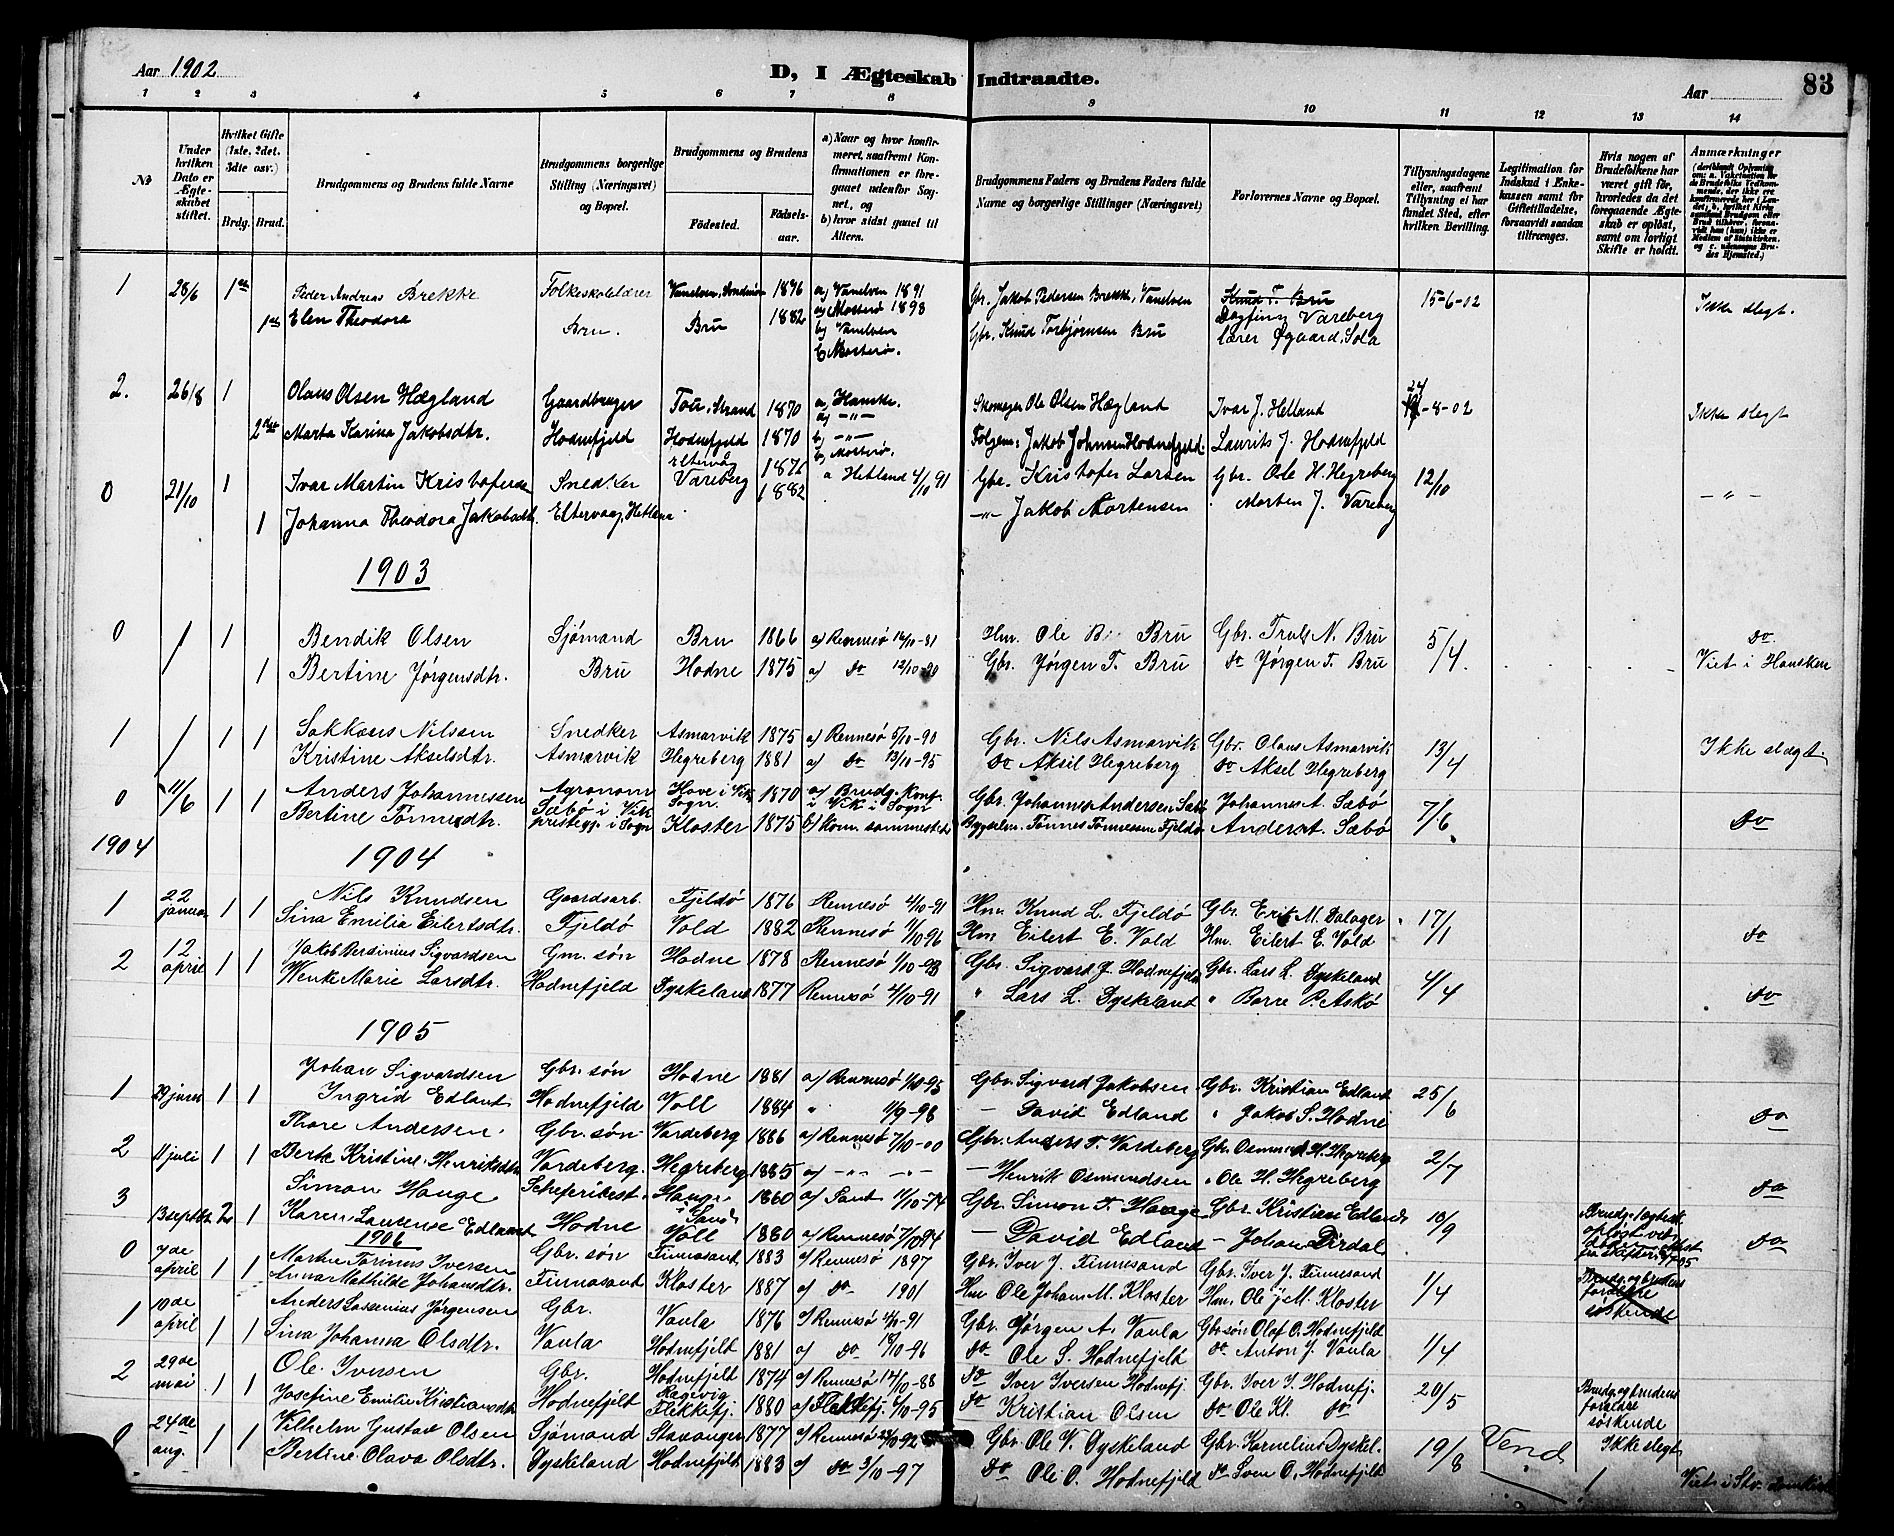 Aar 1902
D, I Ægteskab Indtraadte.
Aar
83
1 2 3 4 5 6 7 8 9 10 11 12 13 14
No
Under hvilken Dato er Ægteskabet stiftet.
Hvilket Gifte (1ste, 2det, 3dte osv.)
Brdg. Brud.
Brudgommens og Brudens fulde Navne
Brudgommens borgerlige Stilling (Næringsvei) og Bopæl.
Brudgommens og Brudens
Fødested.
Fødselsaar.
a) Naar og hvor konfirmeret, saafremt Konfirmationen er foregaaet udenfor Sognet, og
b) hvor sidst gaaet til Alters.
Brudgommens Faders og Brudens Faders fulde Navne og borgerlige Stillinger (Næringsvei)
Forlovernes Navne og Bopæl.
Tillysningsdagene eller, saafremt Tillysning ei har fundet Sted, efter hvilken Bevilling.
Legitimation for Indskud i Enkekassen samt for Giftetilladelse, forsaavidt saadan tiltrænges.
Hvis nogen af Brudefolkene har været gift før, hvorledes da det foregaaende Ægteskab er opløst, samt om lovligt Skifte er holdt.
Anmærkninger
1 28/6 1ste Peder Andreas Brekke Folkeskolelærer Vanelven, Søndmør 1876 a) Vanelven 1891 Gbr. Jakob Pedersen Brekke, Vanelven Knud T. Bru 15-6-02 Ikke slegt.
1ste Elen Theodora Bru. Bru 1882 a) Mosterø 1898 Gbr. Knud Torbjørnsen Bru Dagfiny Vareberg
b) Vanelven lærer Øgaard, Sola
b) Mosterø.
2. 26/8 1 Olaus Olsen Hægland Gaardbruger Tou, Strand 1870 a) Hanske. Skomager Ole Olsen Hægland Ivar J. Helland 24-8-02 Ikke slegt
2det Marta Karina Jakobsdtr. Hodnefjeld Hodnefjeld 1870 b) -"- Følgem: Jakob Johnsen Hodnefjeld Laurits J. Hodnefjeld
b) Mosterø.
0 21/10 1 Ivar Martin Kristofersen Snedker Eltervåg 1876 a Hetland 4/10 91 Gbr. Kristofer Larsen Gbr. Ole H. Hegreberg 12/10 -"-
1 Johanna Theodora Jakobsdtr. Eltervaag, Hetland Vareberg 1882 -"- Jakob Mortensen Morten J. Vareberg
1903
0 / 1 Bendik Olsen Sjømand Bru 1866 a) Rennesø 16/10-81 Hm. Ole B. Bru Gbr. Truls N. Bru 5/4 do
/ 1 Bertine Jørgensdtr. Bru Hodne 1875 a) do 12/10-90 Gbr. Jørgen T. Bru do Jørgen T. Bru Viet i Hausken
1 / 1 1 Sakkæus Nilssen Snedker Asmarvik 1875 a) Rennesø 5/10-90 Gbr. Nils Asmarvik Gbr. Olaus Asmarvik 13/4 Ikke slægt.
Kristine Akselsdtr. Asmarvik Hegreberg 1881 a) do 13/10-95 do Aksel Hegreberg do Aksel Hegreberg
0 11/6 1 1 Anders Johannessen Agronom Hove i Vik Sogn. 1870 a) Brudg. Konf. i Vik i Sogn Gbr. Johannes Andersen Sæbø Johannes A. Sæbø 7/6 do
Bertine Tønnesdtr. Sæbø i Vik prestegj. i Sogn Kloster 1875 b) Kom. sammesteds Byggselm. Tønnes Tønnessen Fjeldø Anders A. Sæbø
1904
1904
1 22 januar 1 1 Nils Knudsen Gaardsarb. Fjeldø 1876 Rennesø 4/10-91 Hm. Knud L. Fjeldø Gbr. Erik M. Dalager 17/1
Sina Emilia Eilertsdtr. Fjeldø Vold 1882 Rennesø 4/10 96 Hm Eilert E. Vold Hm. Eilert E. Vold do
2 12 april 1 1 Jakob Berdinius Sigvardsen Gm. søn Hodne 1878 Rennesø 1/10-93 Gbr. Sigvard J. Hodnefjeld Gbr. Lars L. Dyskeland 4/4
Wenke Marie Larsdtr. Hodnefjeld Dyskeland 1877 Rennesø 4/10-91 " Lars L. Dyskeland " Børre P. Askø do
1905
1 29 juni 1 1 Johan Sigvardsen Gbr. søn Hodne 1881 a) Rennesø 4/10-95 Gbr. Sigvard Jakobsen Gbr. Kristian Edland 25/6
Ingrid Edland Hodnefjeld Voll 1884 " 11/9-98 - David Edland " Jakob S. Hodne do
2 11 juli 1 1 Thore Andersen. Gbr. søn Vardeberg 1886 a) Rennesø 7/10-00 Gbr. Anders T. Vardeberg Gbr. Osmund H. Hegreberg 2/7
Berte Kristine Henriksdtr. Vardeberg. Hegreberg 1885 a) -"- -"- - Henrik Osmundsen " Ole H. Hegreberg
3 13 septbr 2 1 Simon Hauge Hauge i Sand 1860 a) Sand 11/10-74 Gbr. Simon T. Hauge Gbr. Kristian Edland 10/9 do
Karen Laurense Edland Hodne Voll 1880 a) Rennesø 7/10 94 - David Edland - Johan Dirdal do
1906
0 7de april 1 1 Morten Tørines Iversen Gbr. søn Finnesand 1883 a) Rennesø 1897 Gbr. Iver J. Finnesand Gbr. Iver J. Finnesand 1/4 Brudg. og brudens forældre søskende
Anna Mathilde Johansdtr. Finnesand Kloster 1887 a) do 1901 Hm Ole Johan M. Kloster Hm. Ole J. M. Kloster
1 10de april 1 1 Anders Lassenius Jørgensen Gbr. Vaula 1876 a) Rennesø 4/10-91 Gbr. Jørgen A. Vaula Gbr søn Olaf O. Hodnefjeld 1/4
Sina Johanna Olsdtr. Vaula Hodnefjeld 1881 a) do 18/10-96 do Ole S. Hodnefjeld do Anton J. Vaula
2 29de mai 1 1 Ole Iversen Gbr. Hodnefjeld 1874 a) Rennesø 14/10-88 do Iver Iversen Hodnefj. Gbr. Iver I. Hodnefj. 20/5 Brudg. og brudens forældre søskende
Josefine Emilie Kristiansdtr Hodnefjeld Ragevig Flekkefj. 1880 a) Flekkefj. 6/10-95 do Kristian Olsen do Ole Kl. do
0 24de aug. 1 1 Vilhelm Gustav Olsen Sjømand Stavanger 1877 a) Rennesø 23/10 92 Gbr. Ole V. Dyskeland Gbr. Kornelius Dyskel. 19/8 Vend Ikke slegt
Bertine Olava Olsdtr. Dyskeland Hodnefjeld 1883 a) do 3/10-97 do Ole O. Hodnefjeld do Sven O. Hodnefjeld Viet i Stv. domkirke